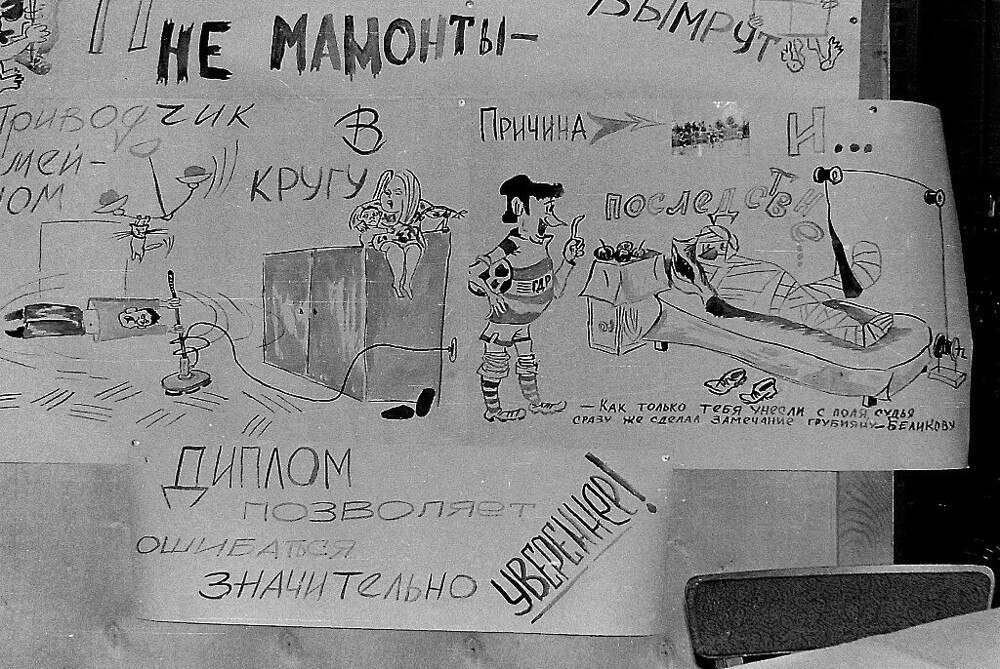 НЕ МАМОНТЫ-
ВЫМРУТ
ПРИВОДЧИК
В
СЕМЕЙ-
НОМ
КРУГУ
ПРИЧИНА
И...
ПОСЛЕДСТВИ
ГДР
- КАК ТОЛЬКО ТЕБЯ УНЕСЛИ С ПОЛЯ, СУДЬЯ
СРАЗУ ЖЕ СДЕЛАЛ ЗАМЕЧАНИЕ ГРУБИЯНУ-БЕЛИКОВУ
ДИПЛОМ
ПОЗВОЛЯЕТ
ОШИБАТЬСЯ
ЗНАЧИТЕЛЬНО
УВЕРЕННЕЕ!